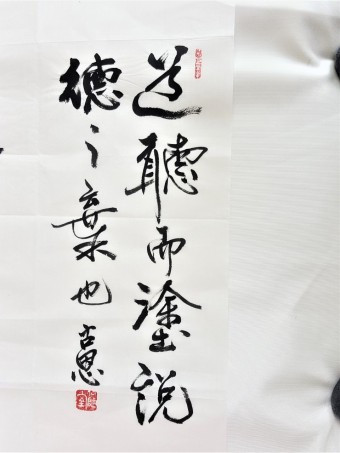 道聽而塗說
德之棄也 古恩